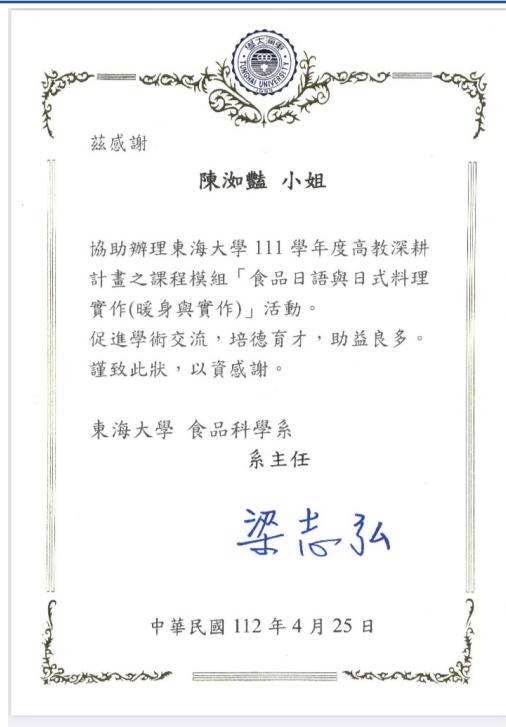 東海大學
TUNGHAI UNIVERSITY
1955
茲感謝
陳洳豔 小姐
協助辦理東海大學 111 學年度高教深耕
計畫之課程模組「食品日語與日式料理
實作(暖身與實作)」活動。
促進學術交流，培德育才，助益良多。
謹致此狀，以資感謝。
東海大學 食品科學系
系主任
梁志弘
中華民國 112 年 4 月 25 日